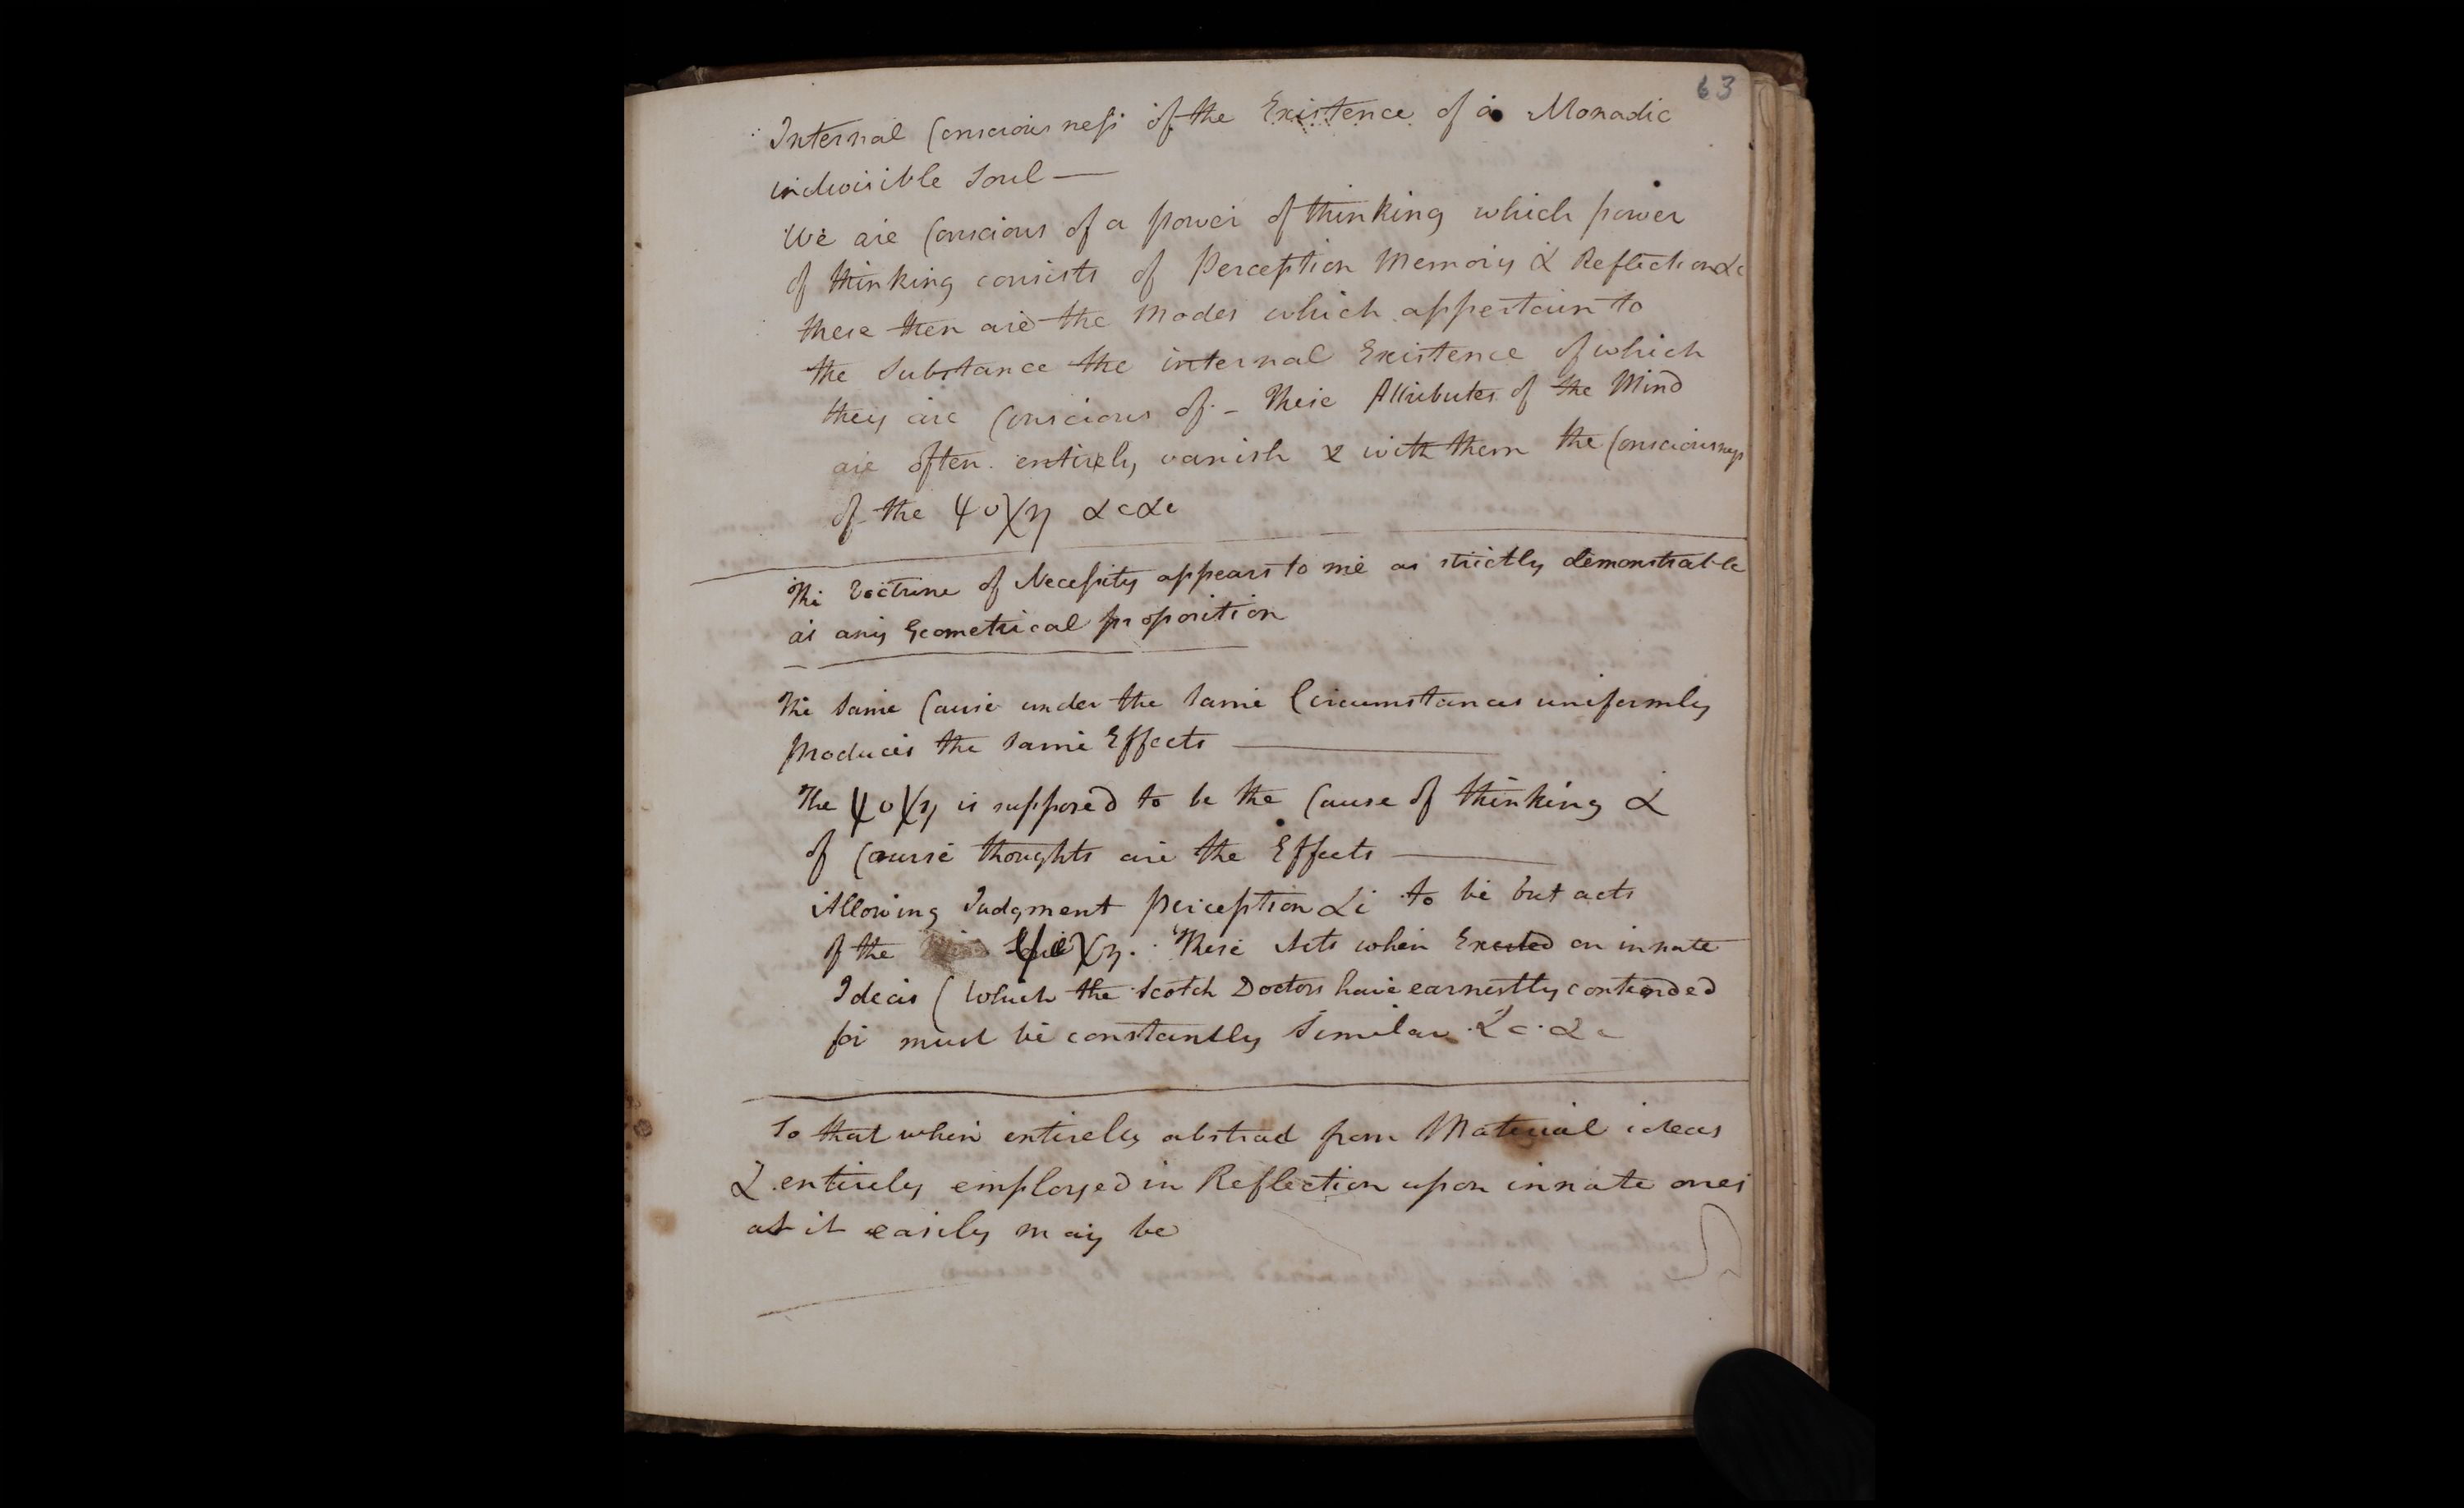 63
Internal Consciousness of the Existence of a Monadic
indivisible Soul —
We are Conscious of a power of thinking which power
of thinking consists of Perception Memory & Reflection &c
these then are the Modes which appertain to
the Substance the internal Existence of which
they are Conscious of. – These Attributes of the Mind
are often entirely vanish & with them the Consciousness
of the ψυχη &c &c
The Doctrine of Necessity appears to me as strictly demonstrable
as any Geometrical proposition
The Same Cause under the Same Circumstances uniformly
produces the Same Effects —
The ψυχη is supposed to be the Cause of thinking &
of Course thoughts are the Effects —
Allowing Judgment Perception &c to be but acts
of the ψυχη. These Acts when Exerted on innate
Ideas (which the Scotch Doctors have earnestly contended
for must be constantly Similar &c. &c
So that when entirely abstrad from Material ideas
& entirely employed in Reflection upon innate ones
as it easily may be